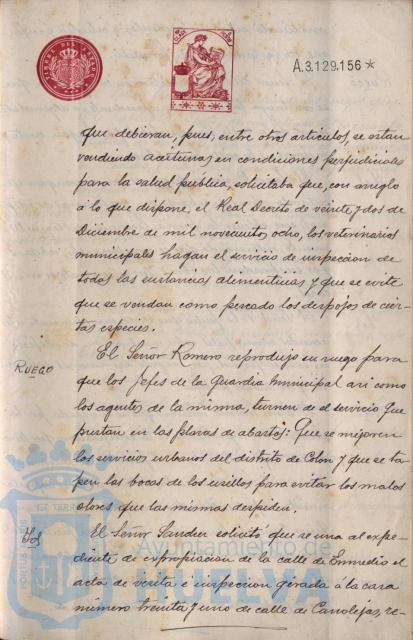 TIMBRE DEL ESTADO
A.3.129.156 *
que debieran, pues, entre otros articulos, se estan
vendiendo aceitunas en condiciones perjudiciales
para la salud pública, solicitaba que, con arreglo
á lo que dispone, el Real Decreto de veinte y dos de
Diciembre de mil novecientos ocho, los veterinarios
municipales hagan el servicio de inspeccion de
todas las sustancias alimenticias y que se evite
que se vendan como pescado los despojos de cier-
tas especies.
RUEGO
El Señor Romero reprodujo su ruego para
que los Jefes de la Guardia Municipal asi como
los agentes de la misma, turnen de el servicio que
prestan en las plazas de abastos: Que se mejoren
los servicios urbanos del distrito de Colon y que se ta-
pen las bocas de los usillos para evitar los malos
olores que las mismas despiden.
Yd
El Señor Sanchez solicitó que se una al expe-
diente de expropiacion de la calle de Enmedio el
acta de visita é inspeccion girada á la casa
número treinta y uno de calle de Canalejas, re-
Ayuntamiento de
HUELVA